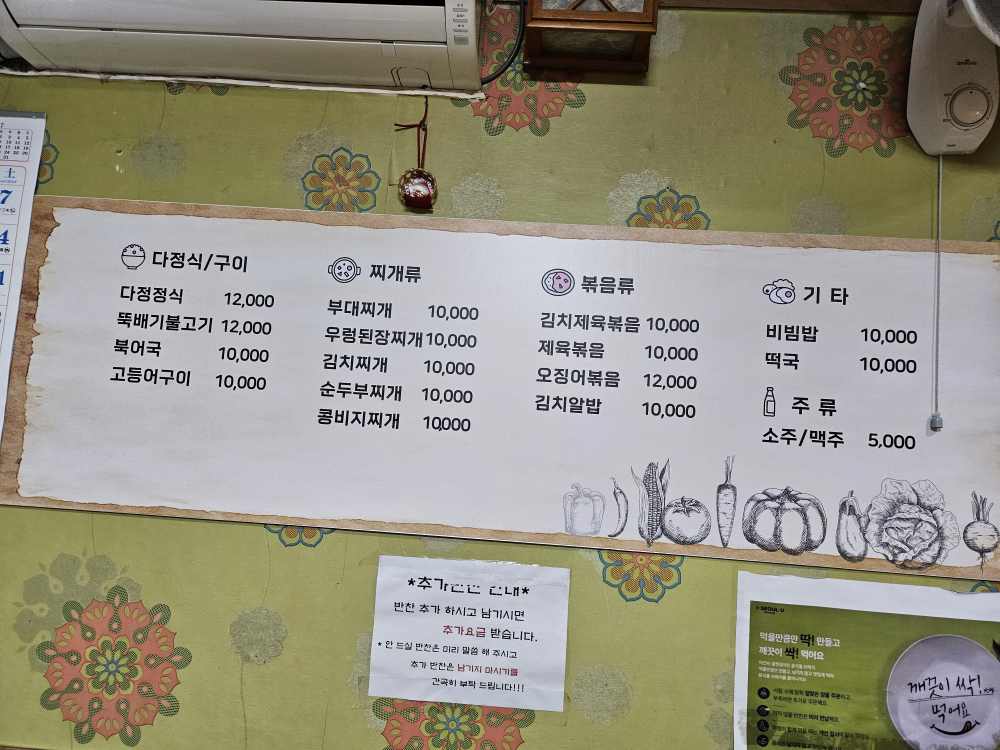 다정식/구이
다정정식 12,000
뚝배기불고기 12,000
북어국 10,000
고등어구이 10,000
찌개류
부대찌개 10,000
우렁된장찌개 10,000
김치찌개 10,000
순두부찌개 10,000
콩비지찌개 10,000
볶음류
김치제육볶음 10,000
제육볶음 10,000
오징어볶음 12,000
김치알밥 10,000
기 타
비빔밥 10,000
떡국 10,000
주 류
소주/맥주 5,000
*추가반찬 안내*
반찬 추가 하시고 남기시면
추가요금 받습니다.
* 안 드실 반찬은 미리 말씀 해 주시고
추가 반찬은 남기지 마시기를
간곡히 부탁 드립니다!!!
I·SEOUL·U
먹을만큼만 딱! 만들고
깨끗이 싹! 먹어요
깨끗이 싹!
먹어요
土
7
4
1